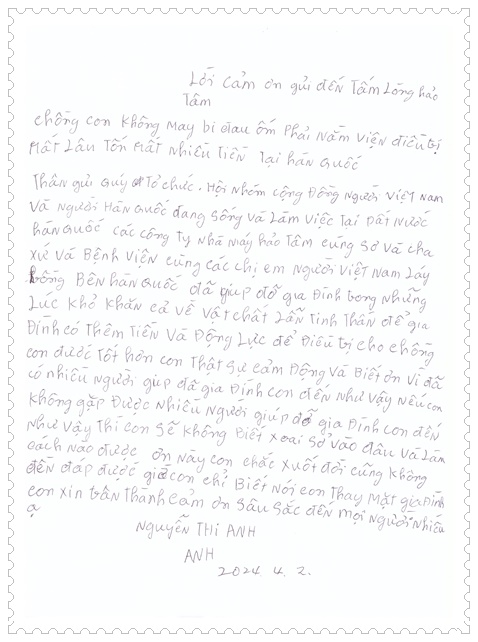 Lời cảm ơn gửi đến Tấm Lòng hảo
Tâm
chồng con không may bị đau ốm phải nằm viện điều trị
rất Lâu Tốn rất nhiều Tiền Tại hàn Quốc
Thân gửi Quý Tổ chức. Hội Nhóm cộng Đồng người Việt Nam
và người Hàn Quốc đang sống và Làm việc Tại Đất Nước
hàn Quốc các công ty Nhà máy hảo Tâm cùng Sơ và cha
xứ và Bệnh viện cùng các chị em người Việt Nam Lấy
chồng Bên hàn Quốc đã giúp đỡ gia Đình trong những
Lúc khó khăn cả về vật chất Lẫn Tinh Thần để gia
Đình có Thêm Tiền và Động Lực để Điều trị cho chồng
con được Tốt hơn con Thật Sự cảm Động và Biết ơn vì đã
có nhiều người giúp đỡ gia Đình con đến như vậy nếu con
không gặp Được nhiều người giúp đỡ gia Đình con đến
như vậy Thì con sẽ không Biết xoai Sở vào đâu và Làm
cách nào được ơn này con chắc xuốt đời cũng không
đền đáp được giờ con chỉ Biết nói con Thay mặt gia Đình
con xin trân Thành cảm ơn Sâu Sắc đến mọi người nhiều
ạ
Nguyễn Thị ANH
ANH
2024 4. 2.